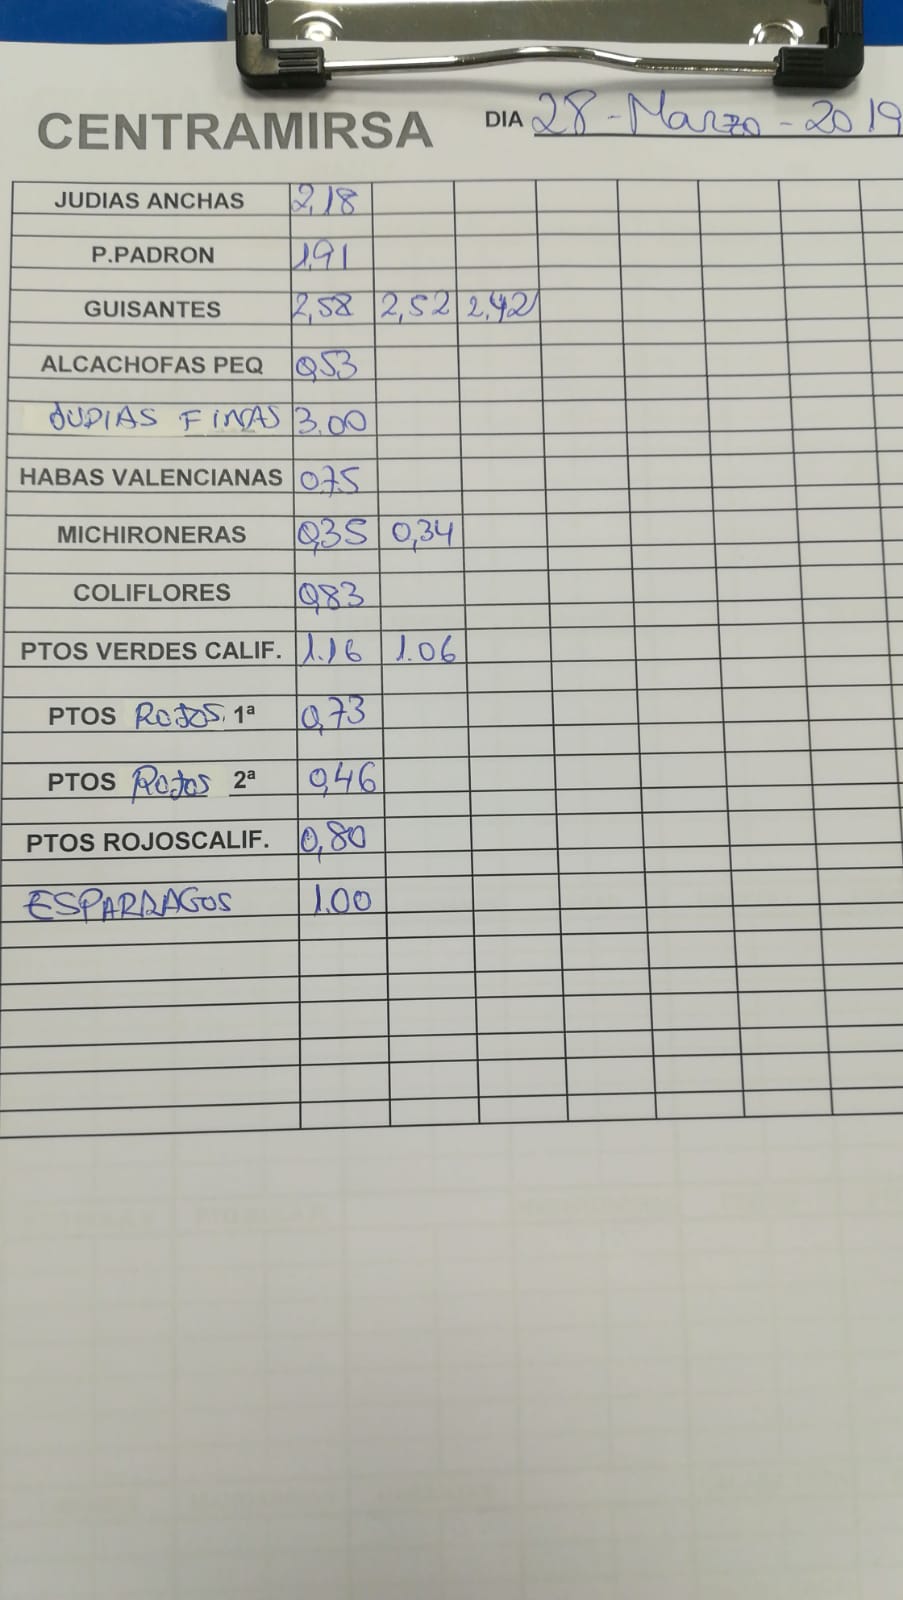 CENTRAMIRSA DIA 28-Marzo-2019
JUDIAS ANCHAS 2,18
P.PADRON 1,91
GUISANTES 2,58 2,52 2,42
ALCACHOFAS PEQ 0,53
JUDIAS FINAS 3.00
HABAS VALENCIANAS 0,75
MICHIRONERAS 0,35 0,34
COLIFLORES 0,83
PTOS VERDES CALIF. 1.16 1.06
PTOS ROJOS 1ª 0,73
PTOS Rojos 2ª 0,46
PTOS ROJOSCALIF. 0,80
ESPARRAGOS 1.00